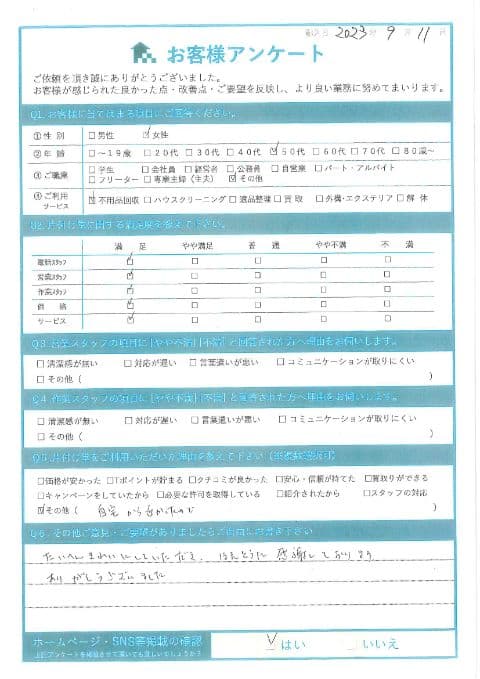 記入日 2023年 9月 11日
お客様アンケート
ご依頼を頂き誠にありがとうございました。
お客様が感じられた良かった点・改善点・ご要望を反映し、より良い業務に努めてまいります。
Q1. お客様に当てはまる項目にご回答ください。
①性 別 □男性 ☑女性
②年 齢 □～19歳 □20代 □30代 □40代 ☑50代 □60代 □70代 □80歳～
③ご職業 □学生 □会社員 □経営者 □公務員 □自営業 □パート・アルバイト
□フリーター □専業主婦（主夫） ☑その他
④ご利用サービス ☑不用品回収 □ハウスクリーニング □遺品整理 □買取 □外構・エクステリア □解体
満 足 やや満足 普 通 やや不満 不 満
電話スタッフ ☑ □ □ □ □
営業スタッフ ☑ □ □ □ □
作業スタッフ ☑ □ □ □ □
価 格 ☑ □ □ □ □
サービス ☑ □ □ □ □
Q3. 営業スタッフの項目に[やや不満][不満]と回答された方へ理由をお伺いします。
□清潔感が無い □対応が遅い □言葉遣いが悪い □コミュニケーションが取りにくい
□その他（ ）
Q4. 作業スタッフの項目に[やや不満][不満]と回答された方へ理由をお伺いします。
□清潔感が無い □対応が遅い □言葉遣いが悪い □コミュニケーションが取りにくい
□その他（ ）
□価格が安かった □Tポイントが貯まる □クチコミが良かった □安心・信頼が持てた □買取りができる
□キャンペーンをしていたから □必要な許可を取得している □紹介されたから □スタッフの対応
☑その他（ 自宅から近かったので ）
Q6. その他ご意見・ご要望がありましたらご自由にお書き下さい
たいへんきれいにしていただき、ほんとうに感謝しております
ありがとうございました
ホームページ・SNS等掲載の確認 ☑はい □いいえ
上記アンケートを掲載させて頂いても宜しいでしょうか？